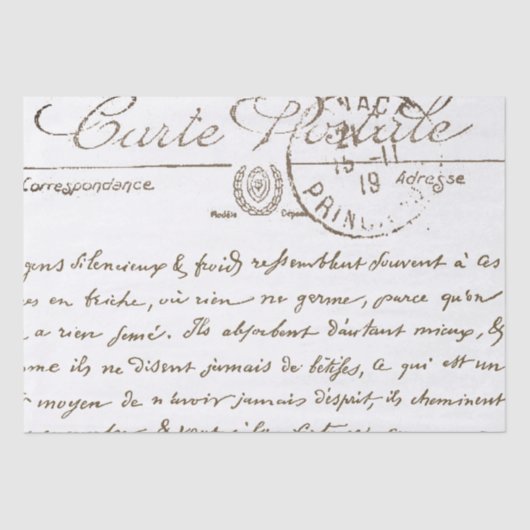 Carte Postale
NAC
15-11
19
PRINC
Correspondance
Adresse
Modèle Dépo
gens silencieux & froids ressemblent souvent à ces
es en friche, où rien ne germe, parce qu'on
a rien semé. Ils absorbent d'autant mieux, &
me ils ne disent jamais de bêtises, ce qui est un
moyen de n'avoir jamais d'esprit, ils cheminent